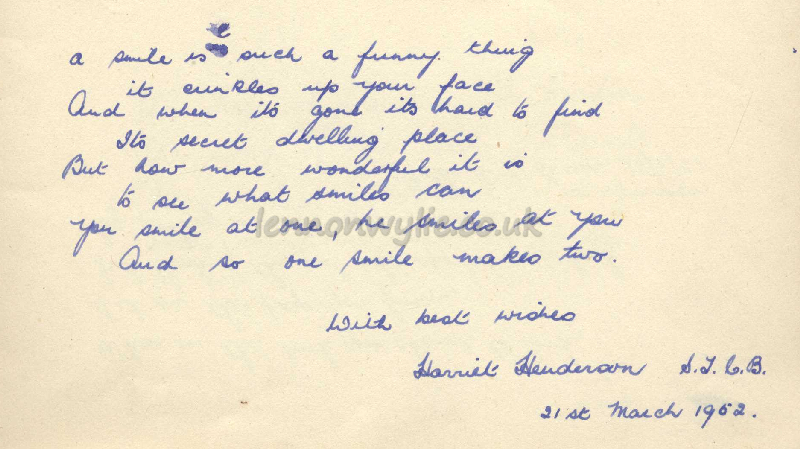 a smile is such a funny thing
it crinkles up your face
And when its gone its hard to find
Its secret dwelling place
But how more wonderful it is
to see what smiles can
you smile at one, he smiles at you
lennonwylie.co.uk
And so one smile makes two.
With best wishes
Harriet Henderson S.T.C.B.
21st March 1952.